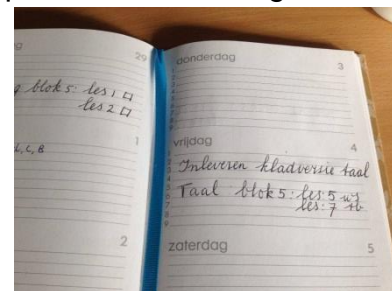 29
blok 5: les 1
les 2
1
L, C, B
2
donderdag 3
vrijdag 4
Inleveren kladversie taal
Taal blok 5: les: 5 ws
les: 7 tb
zaterdag 5